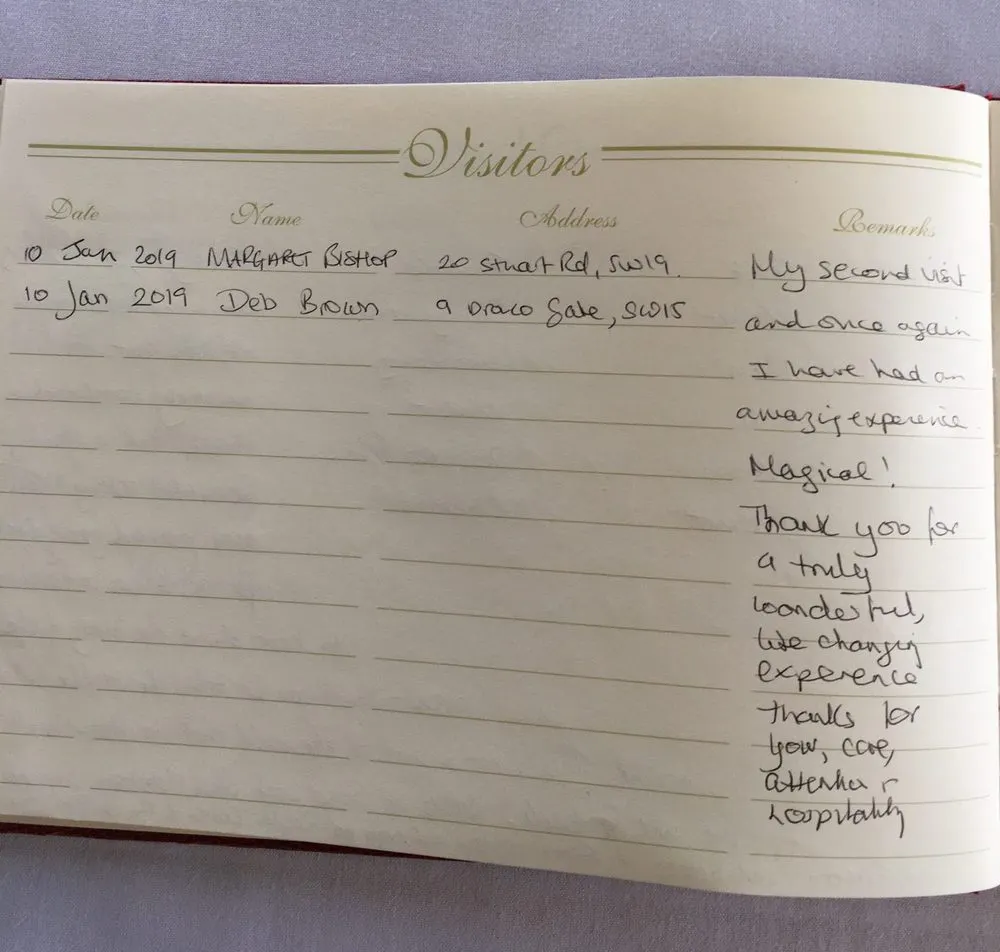 Visitors
Date Name Address Remarks
10 Jan 2019 MARGARET BISHOP 20 Stuart Rd, SW19. My second visit
10 Jan 2019 Deb Brown 9 Draco Gate, SW15 and once again
I have had an
amazing experience.
Magical!
Thank you for
a truly
wonderful,
life changing
experience
thanks for
your, care,
attention &
hospitality